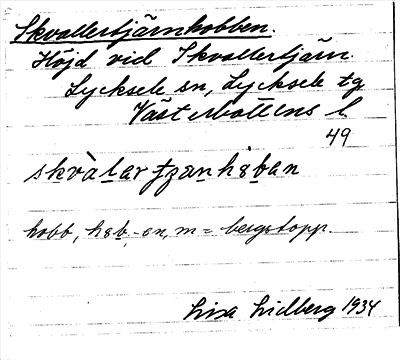 Skvallertjärnhobben.
Höjd vid Skvallertjärn.
Lycksele sn, Lycksele tg
Västerbottens l.
49
skvàlar tʒanhȣban
hobb, hȣb, -en, m = bergstopp.
Lisa Lidberg 1934